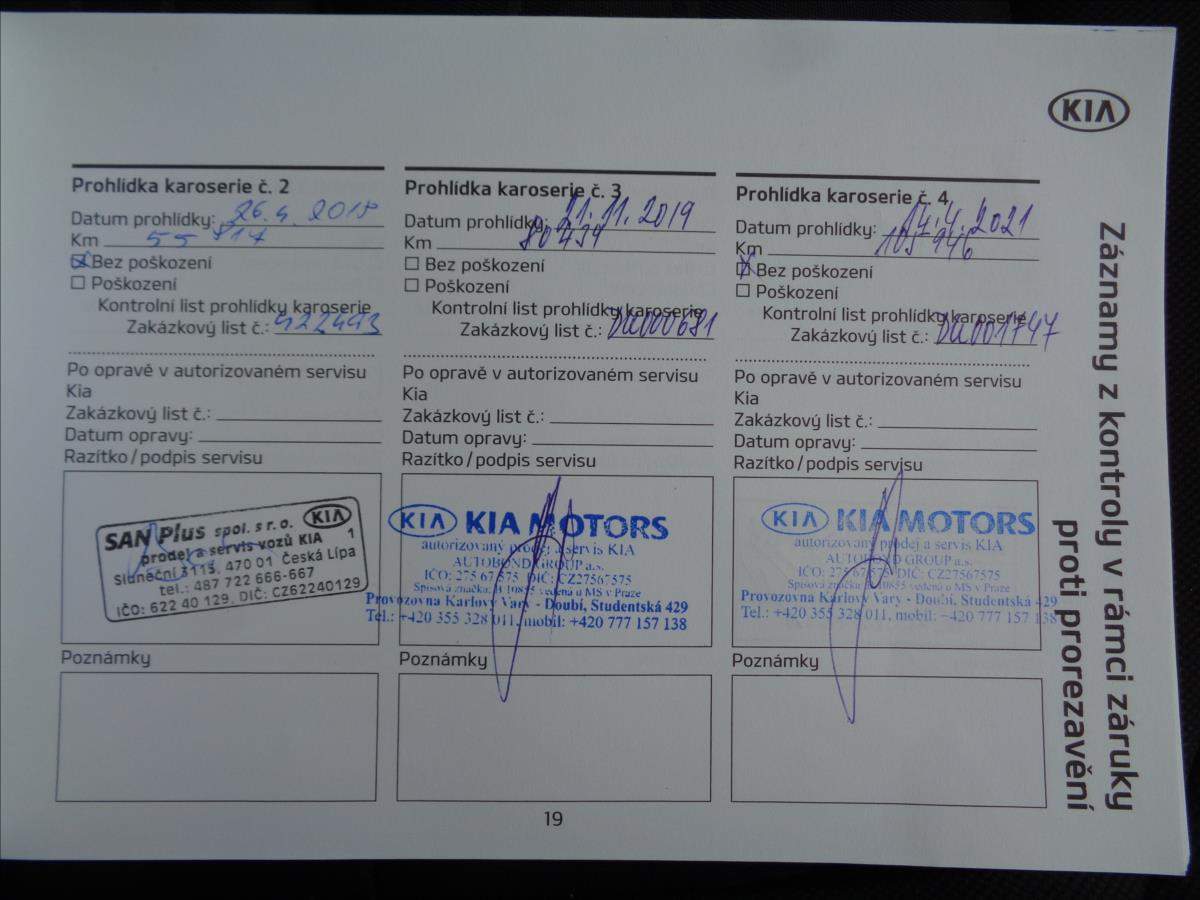 KIA
Záznamy z kontroly v rámci záruky
proti prorezavění
Prohlídka karoserie č. 2
Datum prohlídky: 26.4. 2018
Km 55 817
Bez poškození
Poškození
Kontrolní list prohlídky karoserie
Zakázkový list č.: 422493
Po opravě v autorizovaném servisu
Kia
Zakázkový list č.:
Datum opravy:
Razítko/podpis servisu
SAN Plus spol. s r.o. KIA
prodej a servis vozů KIA 1
Sluneční 3115, 470 01 Česká Lípa
tel.: 487 722 666-667
IČO: 622 40 129, DIČ: CZ62240129
Poznámky
Prohlídka karoserie č. 3
Datum prohlídky: 21.11.2019
Km 80439
Bez poškození
Poškození
Kontrolní list prohlídky karoserie
Zakázkový list č.: DU000681
Po opravě v autorizovaném servisu
Kia
Zakázkový list č.:
Datum opravy:
Razítko/podpis servisu
KIA KIA MOTORS
autorizovaný prodej a servis KIA
AUTOBOND GROUP a.s.
IČO: 275 67 575 DIČ: CZ27567575
Spisová značka: B 10855 vedená u MS v Praze
Provozovna Karlovy Vary - Doubí, Studentská 429
Tel.: +420 355 328 011, mobil: +420 777 157 138
Poznámky
Prohlídka karoserie č. 4
Datum prohlídky: 14.4. 2021
Km 105 946
Bez poškození
Poškození
Kontrolní list prohlídky karoserie
Zakázkový list č.: DU001747
Po opravě v autorizovaném servisu
Kia
Zakázkový list č.:
Datum opravy:
Razítko/podpis servisu
KIA KIA MOTORS
autorizovaný prodej a servis KIA
AUTOBOND GROUP a.s.
IČO: 275 67 575 DIČ: CZ27567575
Spisová značka: B 10855 vedená u MS v Praze
Provozovna Karlovy Vary - Doubí, Studentská 429
Tel.: +420 355 328 011, mobil: +420 777 157 138
Poznámky
19